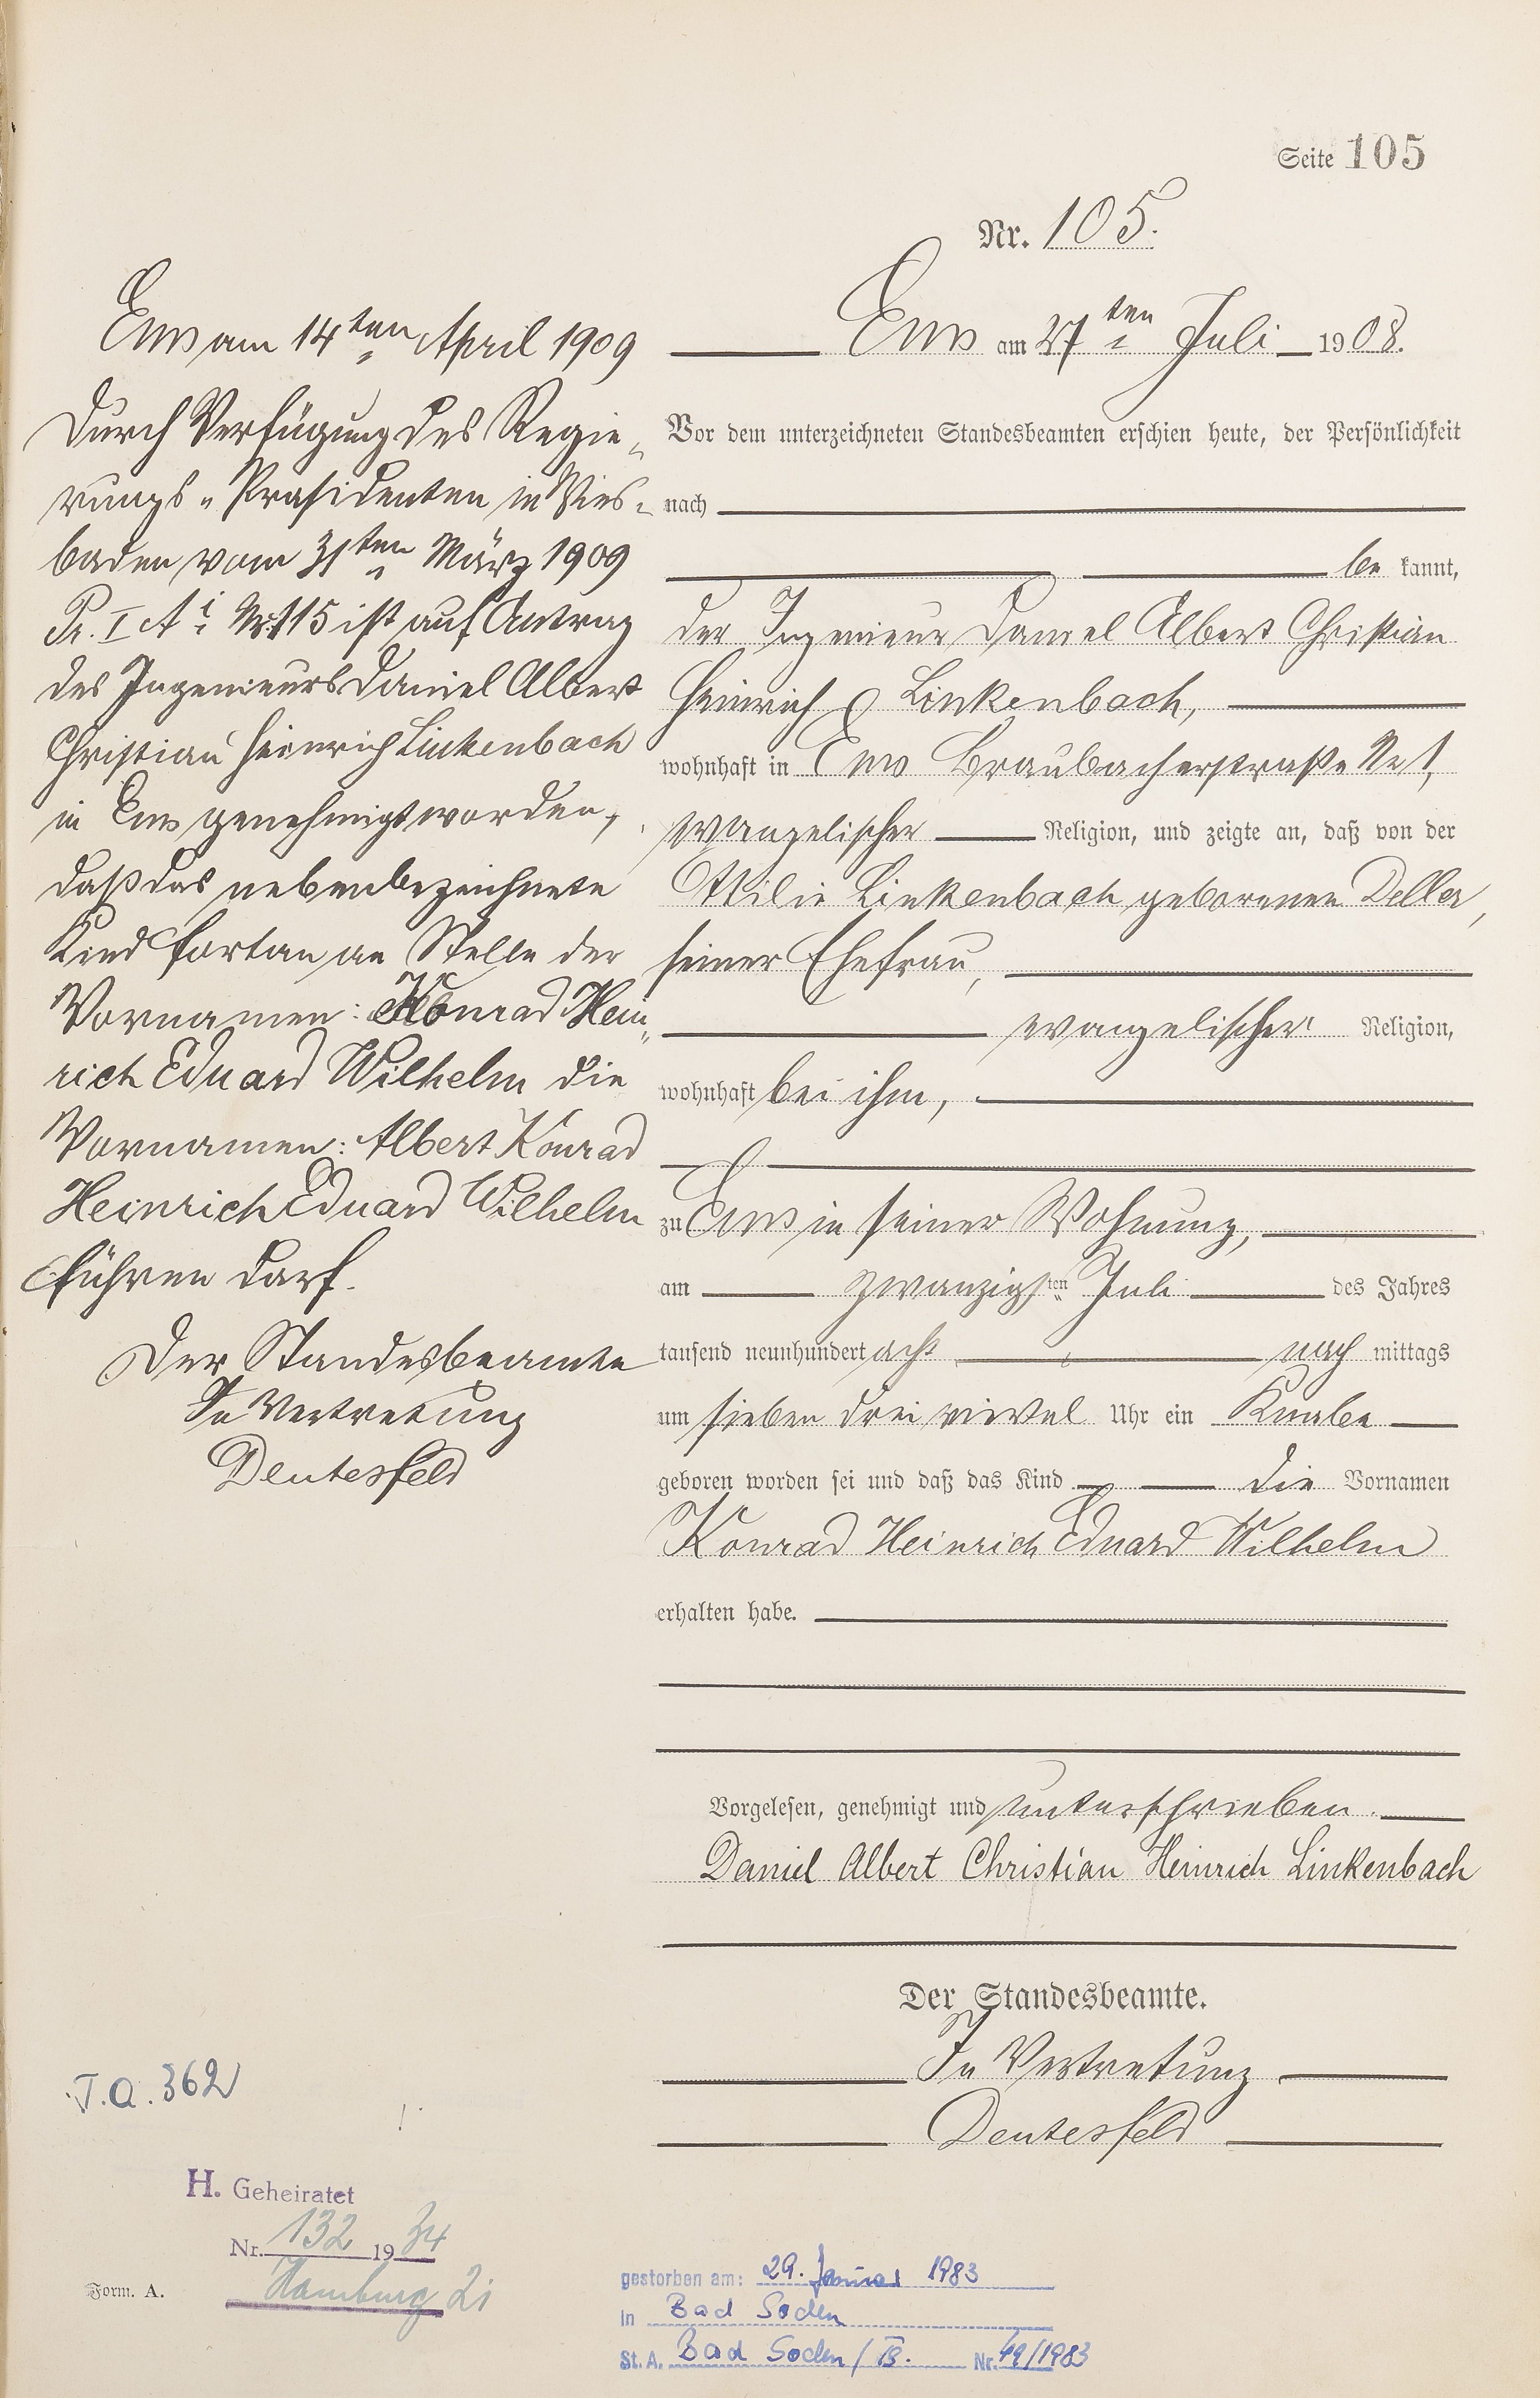 Seite 105
Nr. 105.
Ems am 27ten Juli 1908.
Vor dem unterzeichneten Standesbeamten erschien heute, der Persönlichkeit
nach
be kannt,
der Ingenieur Daniel Albert Christian
Heinrich Linkenbach,
wohnhaft in Ems Braubacherstraße No 1,
evangelischer Religion, und zeigte an, daß von der
Ottilie Linkenbach geborenen Deller,
seiner Ehefrau,
evangelischer Religion,
wohnhaft bei ihm,
zu Ems in seiner Wohnung,
am zwanzigsten Juli des Jahres
tausend neunhundert acht nach mittags
um sieben drei viertel Uhr ein Knabe
geboren worden sei und daß das Kind die Vornamen
Konrad Heinrich Eduard Wilhelm
erhalten habe.
Vorgelesen, genehmigt und unterschrieben.
Daniel Albert Christian Heinrich Linkenbach
Der Standesbeamte.
In Vertretung
Deutesfeld
Ems am 14ten April 1909
Durch Verfügung des Regie-
rungs-Präsidenten in Wies-
baden vom 31ten März 1909
Pr. I A i Nr. 115 ist auf Antrag
des Ingenieurs Daniel Albert
Christian Heinrich Linkenbach
in Ems genehmigt worden,
daß das nebenbezeichnete
Kind fortan an Stelle der
Vornamen: Konrad Hein-
rich Eduard Wilhelm die
Vornamen: Albert Konrad
Heinrich Eduard Wilhelm
führen darf.
Der Standesbeamte
In Vertretung
Deutesfeld
T.A. 362
H. Geheiratet
Nr. 132 1934
Hamburg 2i
Form. A.
gestorben am: 29. Januar 1983
in Bad Soden
St. A. Bad Soden / Ts. Nr. 49/1983